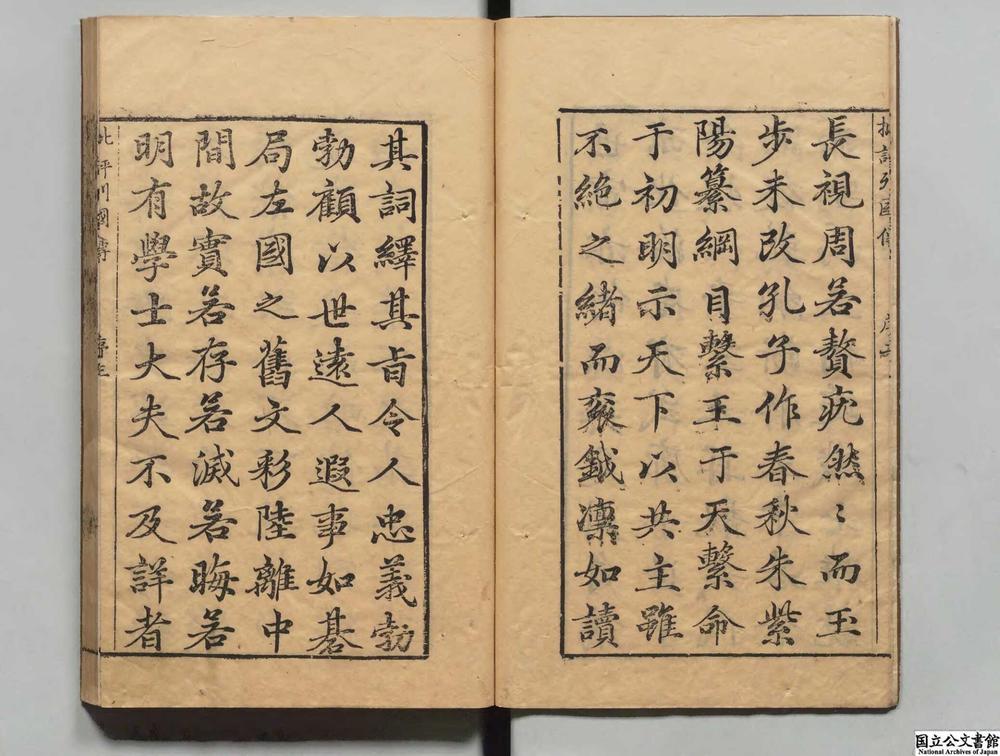 長視周若贅疣然〻而玉
步未改孔子作春秋朱紫
陽纂綱目繫王于天繫命
于初明示天下以共主雖
不絶之緒而袞鉞凛如讀
其詞繹其旨令人忠義勃
勃顧以世遠人遐事如碁
局左國之舊文彩陸離中
間故實若存若滅若晦若
明有學士大夫不及詳者
批評列國傳
序
国立公文書館
National Archives of Japan